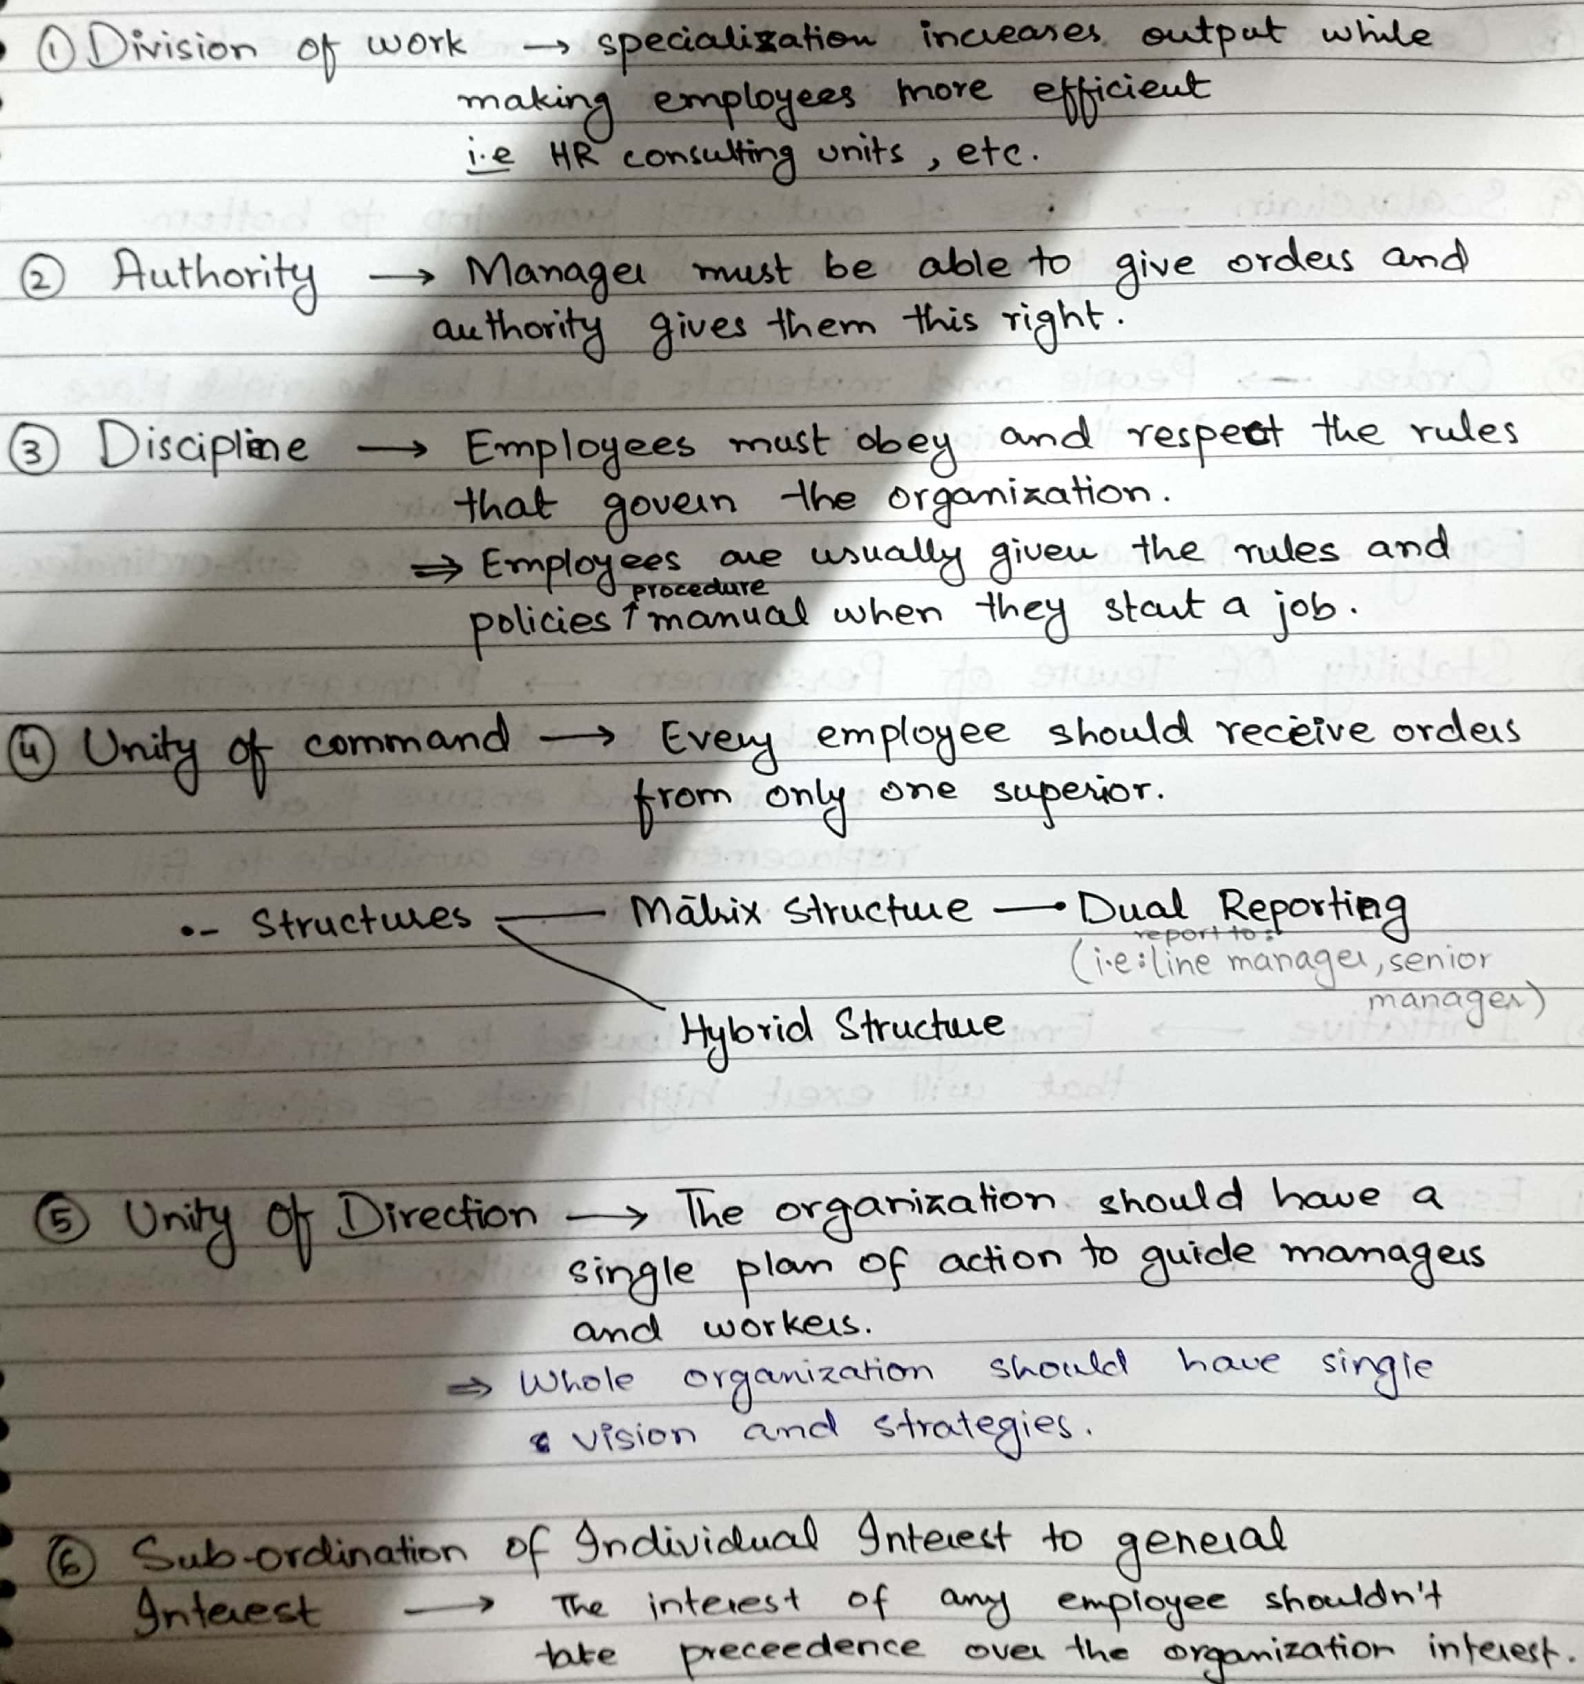 ① Division of work → specialization increases output while
making employees more efficient
i.e HR consulting units, etc.
② Authority → Manager must be able to give orders and
authority gives them this right.
③ Discipline → Employees must obey and respect the rules
that govern the organization.
⇒ Employees are usually given the rules and
procedure
policies ↑ manual when they start a job.
④ Unity of command → Every employee should receive orders
from only one superior.
•- Structures — Matrix Structure — Dual Reporting
report to:
(i.e: line manager, senior
manager)
Hybrid Structure
⑤ Unity of Direction → The organization should have a
single plan of action to guide managers
and workers.
⇒ Whole organization should have single
vision and strategies.
⑥ Sub-ordination of Individual Interest to general
Interest → The interest of any employee shouldn't
take preceedence over the organization interest.